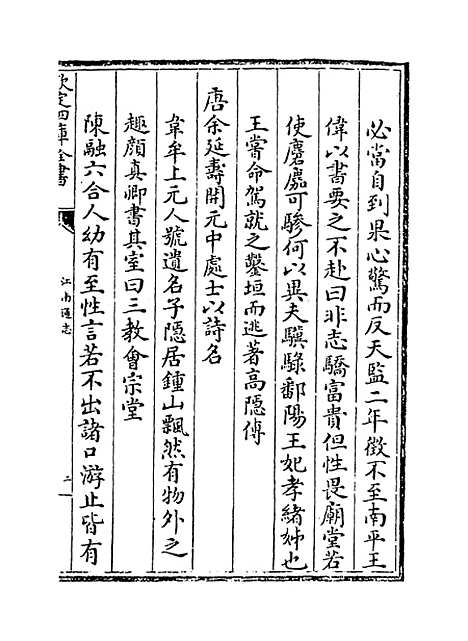 必當自到果心驚而反天監二年徴不至南平王
偉以書要之不赴曰非志驕富貴但性畏廟堂若
使麏麚可驂何以異夫驥騄鄱陽王妃孝緒姊也
王嘗命駕就之鑿垣而逃著高隠傳
唐余延壽開元中處士以詩名
韋牟上元人號遺名子隠居鍾山飄然有物外之
趣顔真卿書其室曰三教會宗堂
陳融六合人幼有至性言若不出諸口游止皆有
欽定四庫全書
江南通志
二